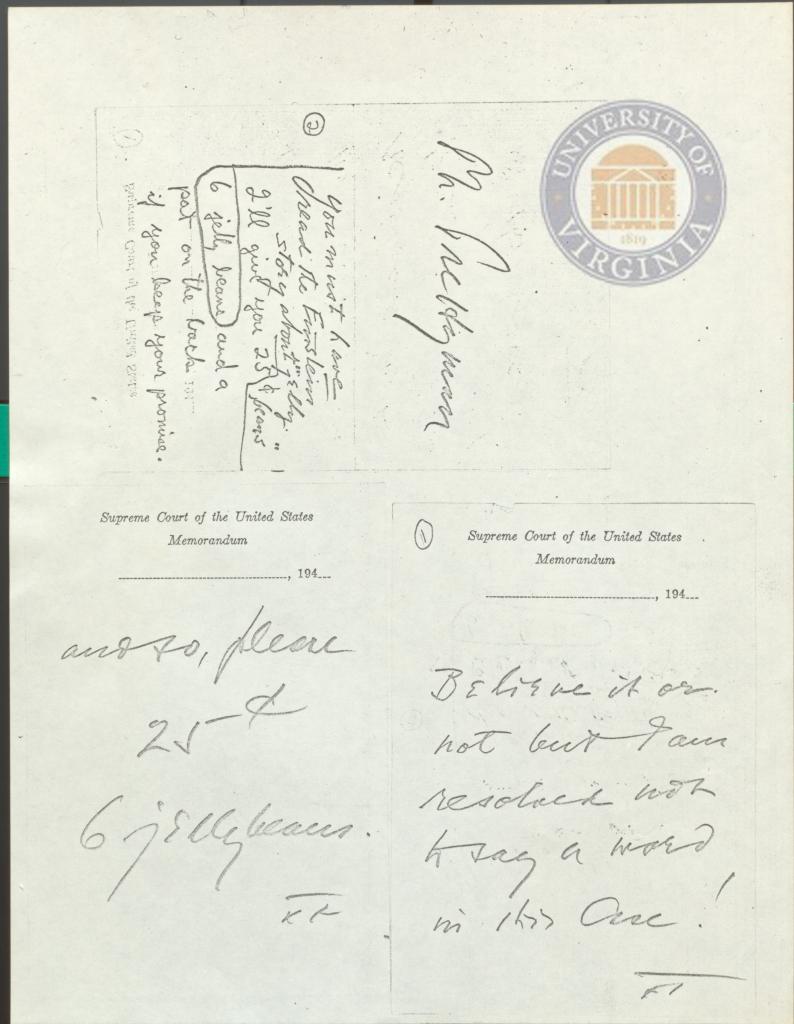 UNIVERSITY OF VIRGINIA
1819
②
You must have
read the Einstein
story about "jelly
beans"
I'll give you 25¢
6 jelly beans and a
pat on the back
if you keep your promise.
Supreme Court of the United States
Memorandum
, 194
and so, please
25 ¢
6 jellybeans.
FF
①
Supreme Court of the United States
Memorandum
, 194
Believe it or
not but I am
resolved not
to say a word
in this Case!
FF